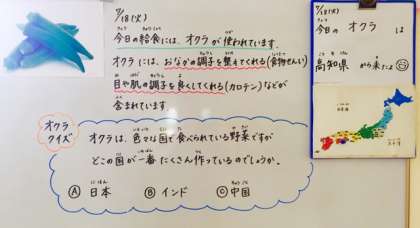 7/18(火)
今日の給食には、オクラが使われています。
オクラには、おなかの調子を整えてくれる(食物せんい)
目や肌の調子を良くしてくれる(カロテン)などが
含まれています。
オクラ
クイズ
オクラは、色々な国で食べられている野菜ですが
どこの国が一番たくさん作っているのでしょうか。
Ⓐ 日本 Ⓑ インド Ⓒ 中国
7/18(火)
今日の オクラ は
高知県 から来たよ